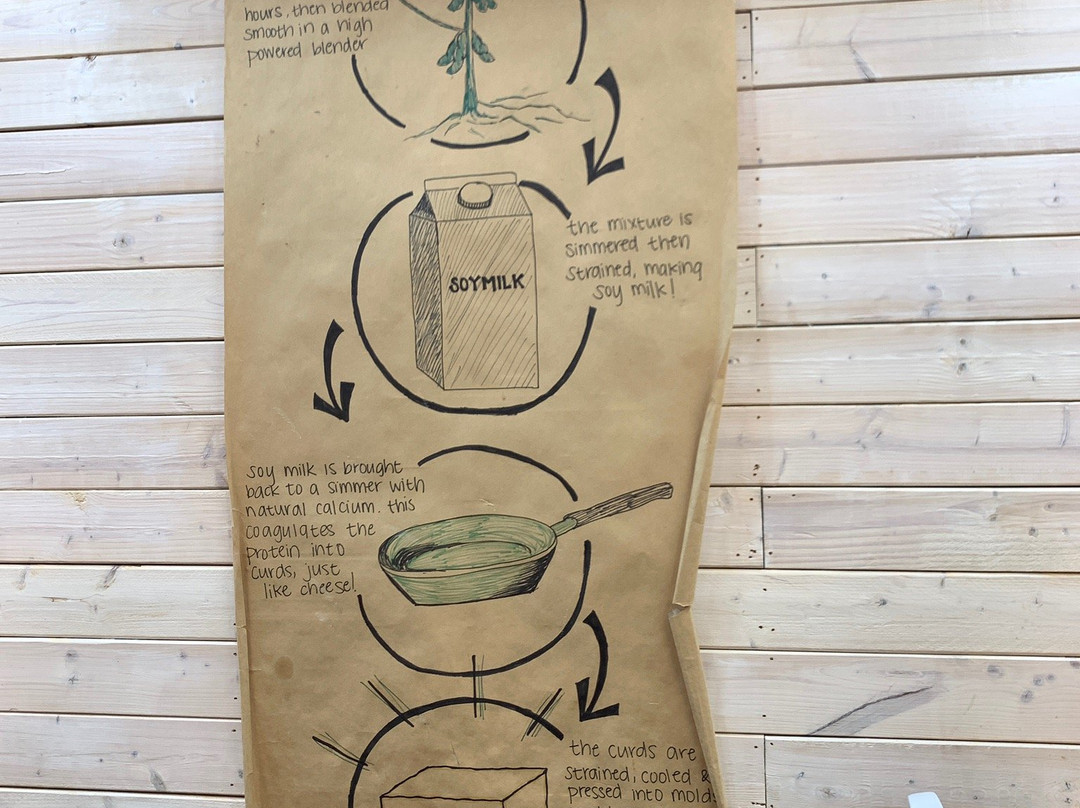 hours, then blended
smooth in a high
powered blender
the mixture is
simmered then
strained, making
soy milk!
SOYMILK
soy milk is brought
back to a simmer with
natural calcium. this
coagulates the
protein into
curds, just
like cheese!
the curds are
strained, cooled &
pressed into molds